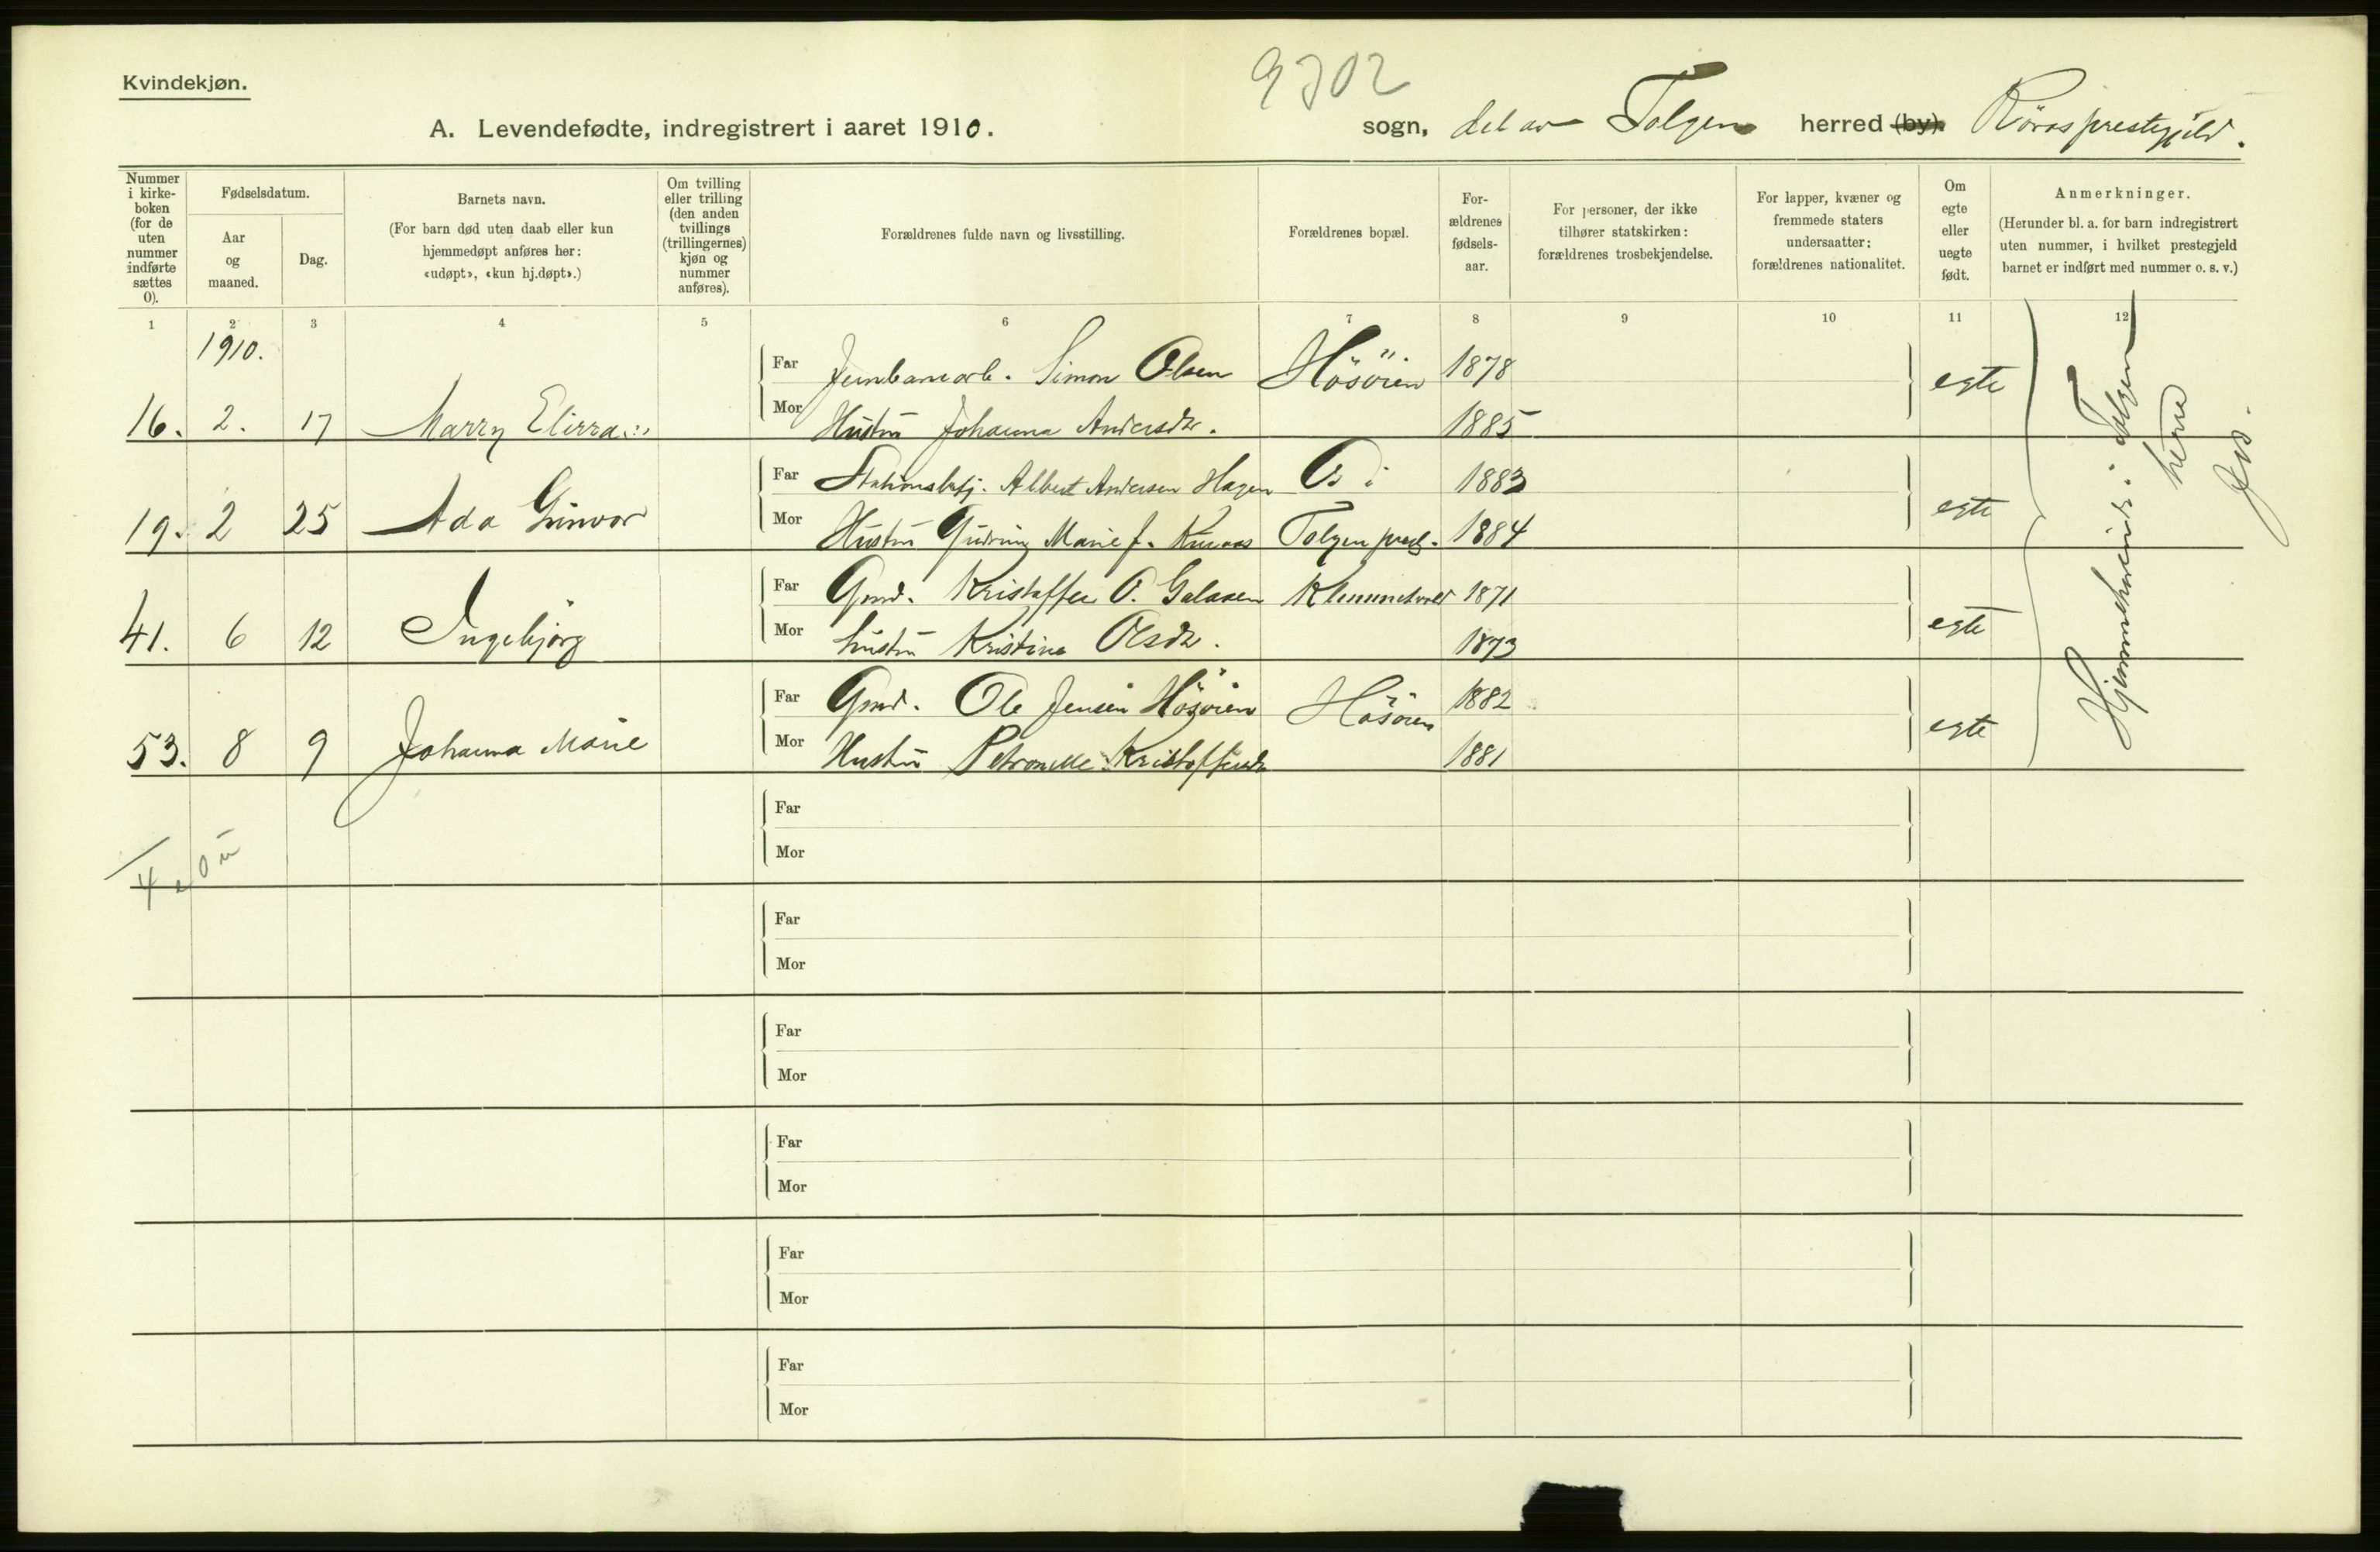 Kvindekjøn.
9702
A. Levendefødte, indregistrert i aaret 1910.
sogn, del av Tolgen herred (by). Röros prestegjeld.
Nummer i kirkeboken (for de uten nummer indførte sættes 0).
Fødselsdatum.
Aar og maaned.
Dag.
Barnets navn.
(For barn død uten daab eller kun hjemmedøpt anføres her: «udøpt», «kun hj.døpt».)
Om tvilling eller trilling (den anden tvillings (trillingernes) kjøn og nummer anføres).
Forældrenes fulde navn og livsstilling.
Forældrenes bopæl.
For-ældrenes fødsels-aar.
For personer, der ikke tilhører statskirken: forældrenes trosbekjendelse.
For lapper, kvæner og fremmede staters undersaatter: forældrenes nationalitet.
Om egte eller uegte født.
Anmerkninger.
(Herunder bl. a. for barn indregistrert uten nummer, i hvilket prestegjeld barnet er indført med nummer o. s. v.)
1 2 3 4 5 6 7 8 9 10 11 12
1910.
Far Jernbanearb. Simon Olsen Hösöien 1878
16. 2. 17 Marry Mor Hustru Johanna Andersdtr. 1885 egte
Far Stationsbetj. Albert Andersen Hagen Os i 1883
19. 2 25 Ada Gunvor Mor Hustru Gudrun Marie f. Tolgen prestg. 1884 egte
Far Gmd. Kristoffer O. Galaaen Klemmetvold 1871
41. 6 12 Ingebjörg Mor hustru Kristine Olsdtr. 1873 egte
Far Gmd. Ole Jensen Hösöien Hösöien 1882
53. 8 9 Johanna Marie Mor Hustru Petronelle Kristoffersdtr 1881 egte
Hjemmehørende i Tolgen
herred
Far
Mor
4
Far
Mor
Far
Mor
Far
Mor
Far
Mor
Far
Mor